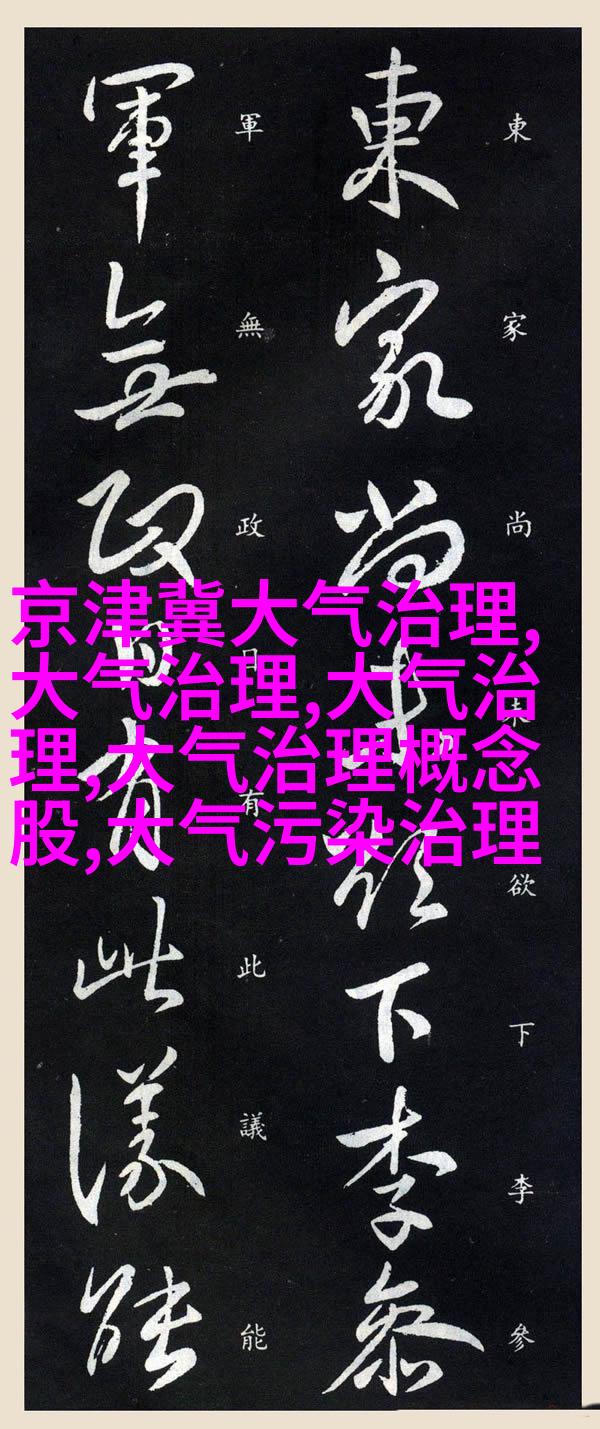 東家尚未欲下李參
東家尚未欲下李參
軍無政日有此議能
軍無政日有此議能
京津冀大气治理,
大气治理,大气治
理,大气治理概念
股,大气污染治理